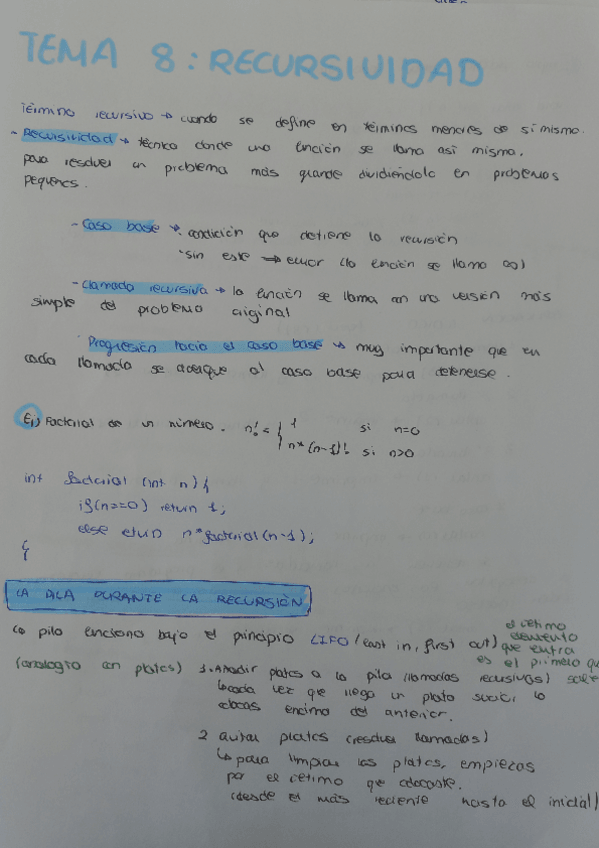 TEMA 8: RECURSIVIDAD
Término recursivo → cuando se define en términos menores de si mismo.
- Recursividad → técnica donde una función se llama asi misma.
para resolver un problema más grande dividiéndolo en problemas
pequeños.
- Caso base → · condición que detiene la recursión
· sin este → error (la función se llama ∞)
- Llamada recursiva → la función se llama con una versión más
simple del problema original
Progresión hacia el caso base → muy importante que en
cada llamada se acerque al caso base para detenerse.
Ej) Factorial de un número. n! = { 1 si n=0
{ n*(n-1)! si n>0
int factorial (int n) {
if(n==0) return 1;
else eturn n*factorial(n-1);
{
LA PILA DURANTE LA RECURSIÓN
La pila funciona bajo el principio LIFO (last in, first out)
el último
elemento
que entra
es el primero que
sale
(analogía con platos) 1. Añadir platos a la pila (llamadas recursivas)
↳ cada vez que llega un plato sucio, lo
colocas encima del anterior.
2 platos (resolver llamadas)
↳ para limpiar los platos, empiezas
por el último que colocaste.
(desde el más reciente hasta el inicial)